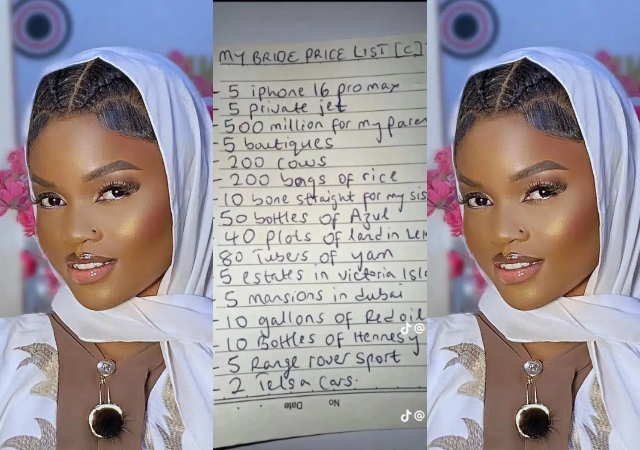 MY BRIDE PRICE LIST [C]
- 5 iphone 16 pro max
- 5 private jet
- 500 million for my paren
- 5 boutiques
- 200 cows
- 200 bags of rice
- 10 bone straight for my sis
- 50 bottles of Azul
- 40 plots of land in Lek
- 80 Tubers of yam
- 5 estates in victoria Isla
- 5 mansions in dubai
- 10 gallons of Red oil
- 10 Bottles of Hennesy
- 5 Range rover sport
- 2 Telsa Cars.
No Date
@
@